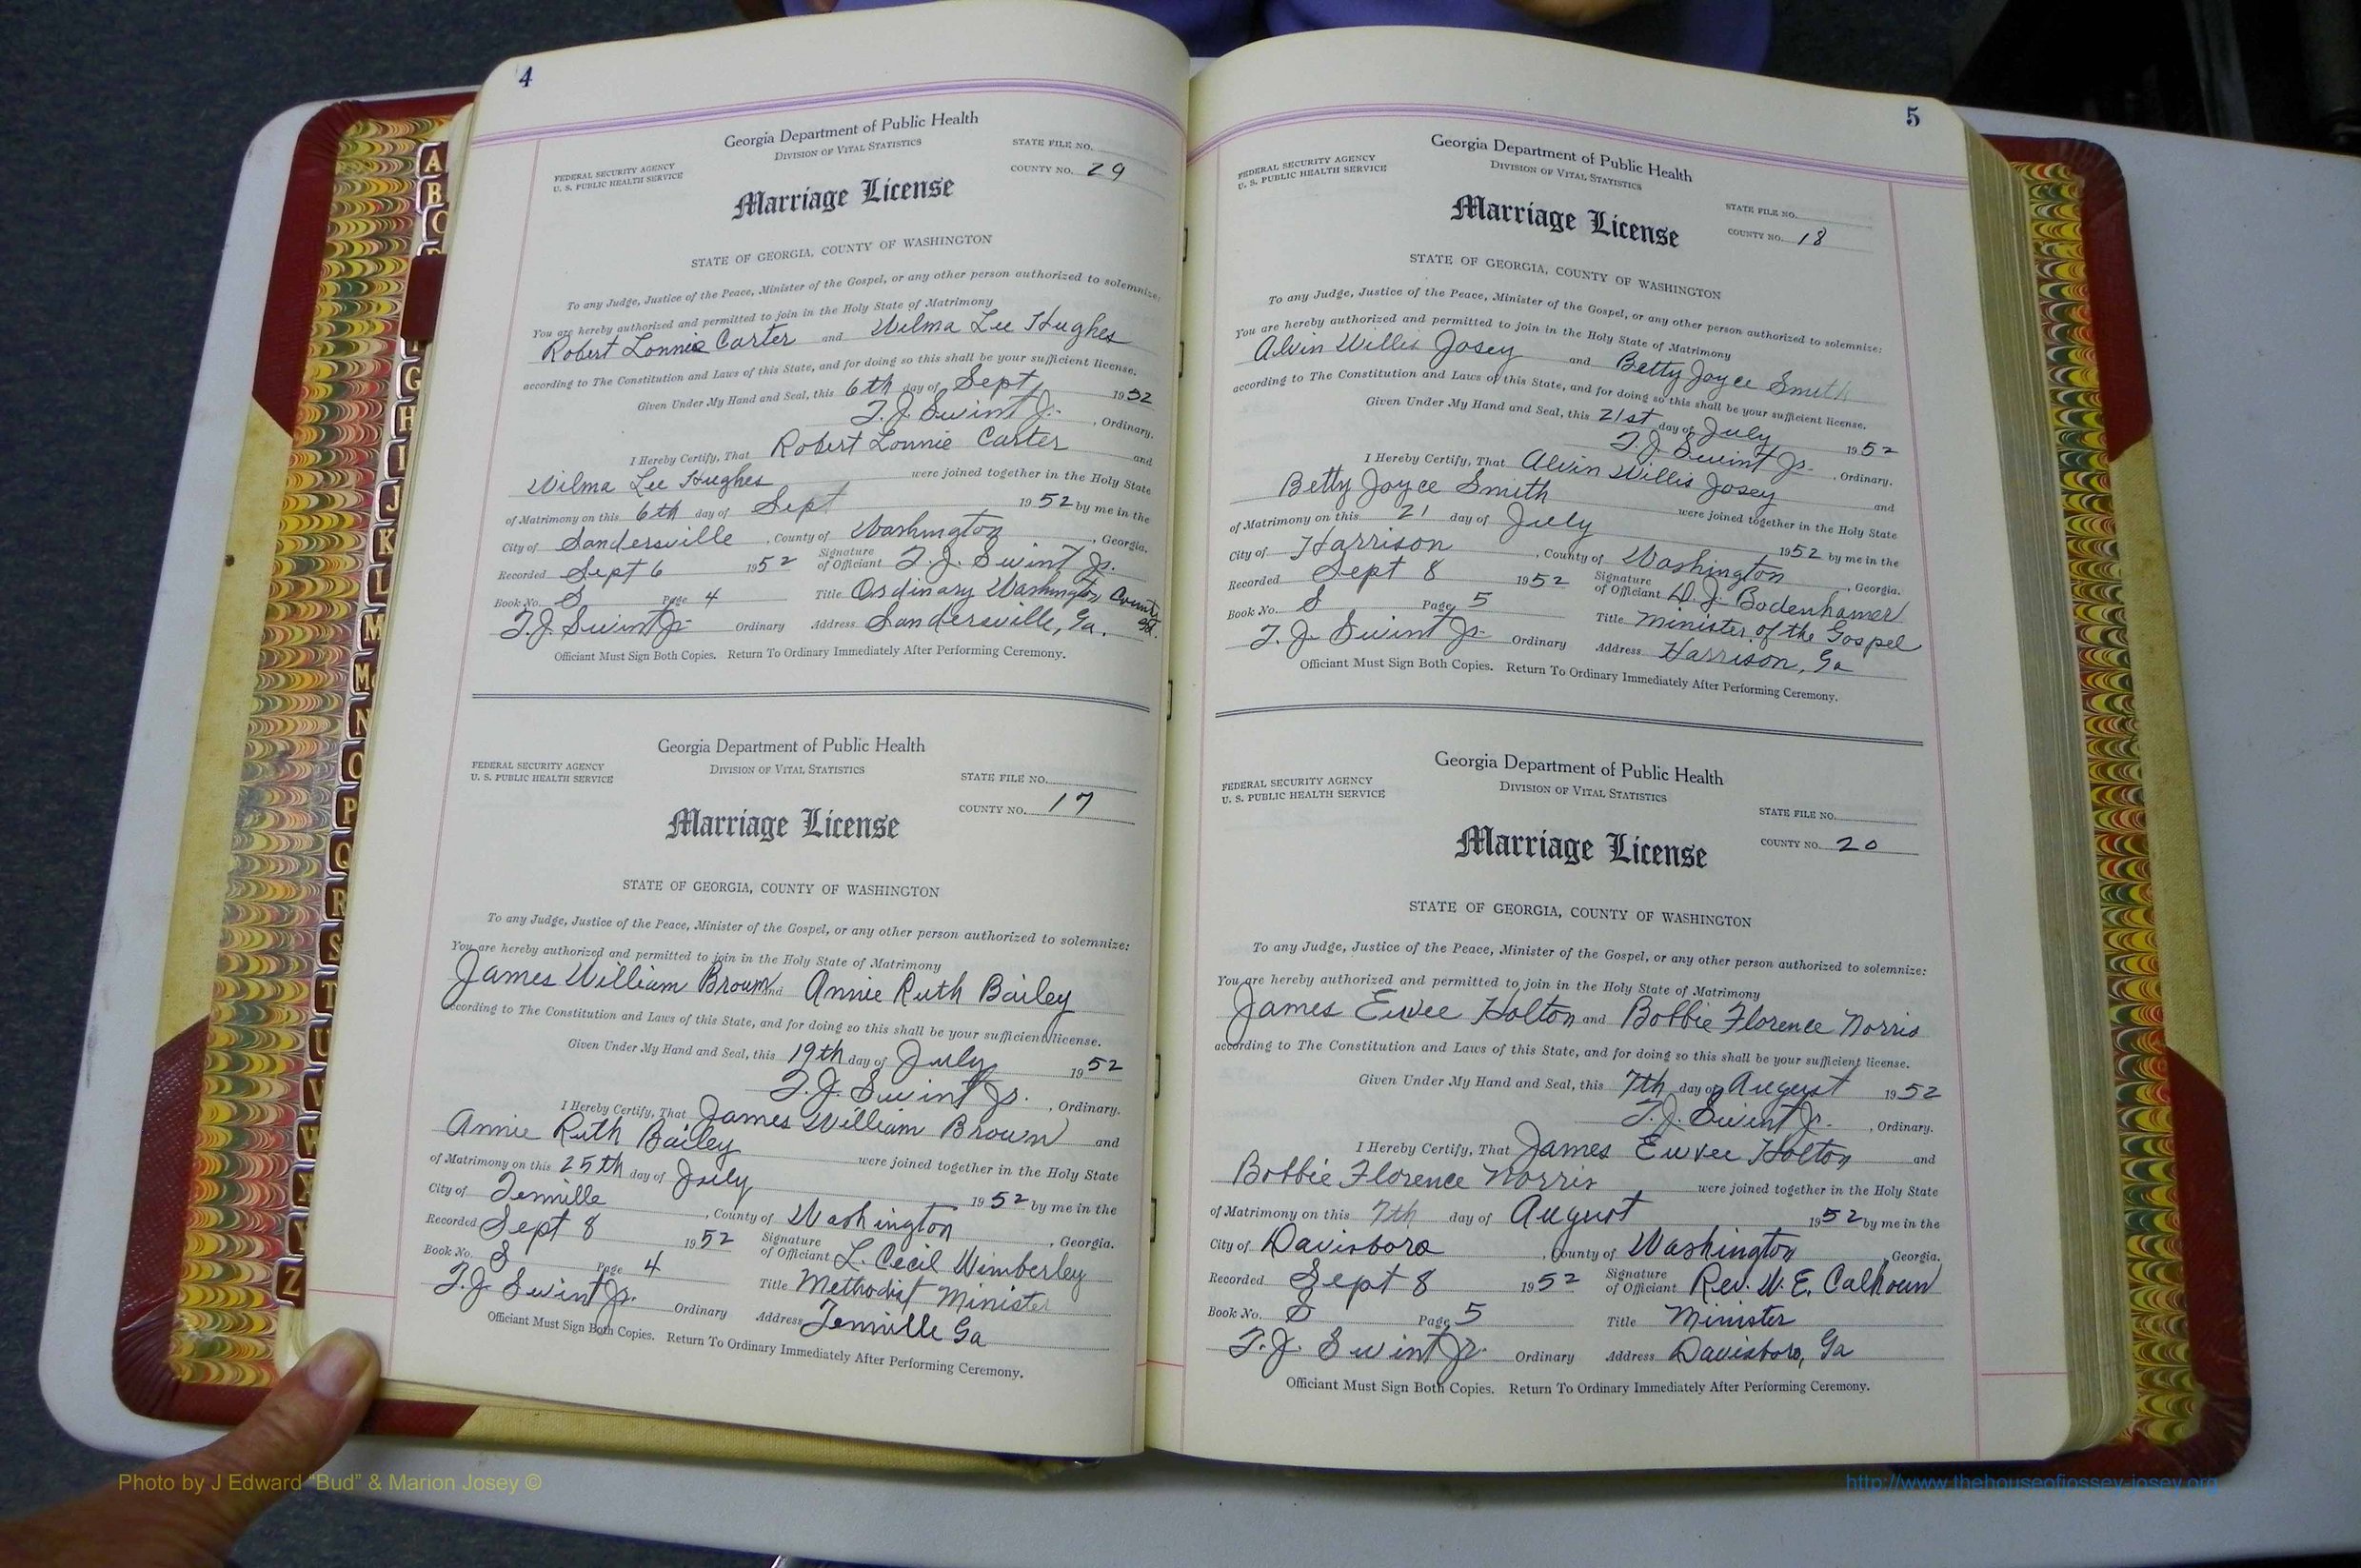 4
Georgia Department of Public Health
DIVISION OF VITAL STATISTICS
FEDERAL SECURITY AGENCY
U. S. PUBLIC HEALTH SERVICE
STATE FILE NO.
COUNTY NO. 29
Marriage License
STATE OF GEORGIA, COUNTY OF WASHINGTON
To any Judge, Justice of the Peace, Minister of the Gospel, or any other person authorized to solemnize:
You are hereby authorized and permitted to join in the Holy State of Matrimony
Robert Lonnie Carter and Wilma Lee Hughes
according to The Constitution and Laws of this State, and for doing so this shall be your sufficient license.
Given Under My Hand and Seal, this 6th day of Sept, 1952
T. J. Swint Jr. , Ordinary.
I Hereby Certify, That Robert Lonnie Carter and
Wilma Lee Hughes were joined together in the Holy State
of Matrimony on this 6th day of Sept 1952 by me in the
City of Sandersville , County of Washington , Georgia.
Recorded Sept 6 1952 Signature of Officiant T. J. Swint Jr.
Book No. S Page 4 Title Ordinary Washington County Ga.
T. J. Swint Jr Ordinary Address Sandersville, Ga.
Officiant Must Sign Both Copies. Return To Ordinary Immediately After Performing Ceremony.
Georgia Department of Public Health
DIVISION OF VITAL STATISTICS
FEDERAL SECURITY AGENCY
U. S. PUBLIC HEALTH SERVICE
STATE FILE NO.
COUNTY NO. 17
Marriage License
STATE OF GEORGIA, COUNTY OF WASHINGTON
To any Judge, Justice of the Peace, Minister of the Gospel, or any other person authorized to solemnize:
You are hereby authorized and permitted to join in the Holy State of Matrimony
James William Brown and Annie Ruth Bailey
according to The Constitution and Laws of this State, and for doing so this shall be your sufficient license.
Given Under My Hand and Seal, this 19th day of July 1952
T. J. Swint Jr. , Ordinary.
I Hereby Certify, That James William Brown and
Annie Ruth Bailey were joined together in the Holy State
of Matrimony on this 25th day of July 1952 by me in the
City of Tennille , County of Washington , Georgia.
Recorded Sept 8 1952 Signature of Officiant L. Cecil Wimberley
Book No. S Page 4 Title Methodist Minister
T. J. Swint Jr. Ordinary Address Tennille Ga
Officiant Must Sign Both Copies. Return To Ordinary Immediately After Performing Ceremony.
5
Georgia Department of Public Health
DIVISION OF VITAL STATISTICS
FEDERAL SECURITY AGENCY
U. S. PUBLIC HEALTH SERVICE
STATE FILE NO.
COUNTY NO. 18
Marriage License
STATE OF GEORGIA, COUNTY OF WASHINGTON
To any Judge, Justice of the Peace, Minister of the Gospel, or any other person authorized to solemnize:
You are hereby authorized and permitted to join in the Holy State of Matrimony
Alvin Willis Josey and Betty Joyce Smith
according to The Constitution and Laws of this State, and for doing so this shall be your sufficient license.
Given Under My Hand and Seal, this 21st day of July 1952
T. J. Swint Jr. , Ordinary.
I Hereby Certify, That Alvin Willis Josey and
Betty Joyce Smith were joined together in the Holy State
of Matrimony on this 21 day of July 1952 by me in the
City of Harrison , County of Washington , Georgia.
Recorded Sept 8 1952 Signature of Officiant D. J. Bodenhamer
Book No. S Page 5 Title Minister of the Gospel
T. J. Swint Jr Ordinary Address Harrison, Ga
Officiant Must Sign Both Copies. Return To Ordinary Immediately After Performing Ceremony.
Georgia Department of Public Health
DIVISION OF VITAL STATISTICS
FEDERAL SECURITY AGENCY
U. S. PUBLIC HEALTH SERVICE
STATE FILE NO.
COUNTY NO. 20
Marriage License
STATE OF GEORGIA, COUNTY OF WASHINGTON
To any Judge, Justice of the Peace, Minister of the Gospel, or any other person authorized to solemnize:
You are hereby authorized and permitted to join in the Holy State of Matrimony
James Euvee Holton and Bobbie Florence Norris
according to The Constitution and Laws of this State, and for doing so this shall be your sufficient license.
Given Under My Hand and Seal, this 7th day of August 1952
T. J. Swint Jr. , Ordinary.
I Hereby Certify, That James Euvee Holton and
Bobbie Florence Norris were joined together in the Holy State
of Matrimony on this 7th day of August 1952 by me in the
City of Davisboro , County of Washington , Georgia.
Recorded Sept 8 1952 Signature of Officiant Rev. W. E. Calhoun
Book No. S Page 5 Title Minister
T. J. Swint Jr. Ordinary Address Davisboro, Ga
Officiant Must Sign Both Copies. Return To Ordinary Immediately After Performing Ceremony.
A
B
C
G
H
I
J
K
L
M
Mc
N
O
P
Q
R
S
T
U
V
W
X
Y
Z
Photo by J Edward "Bud" & Marion Josey ©
http://www.thehouseofjossey-josey.org